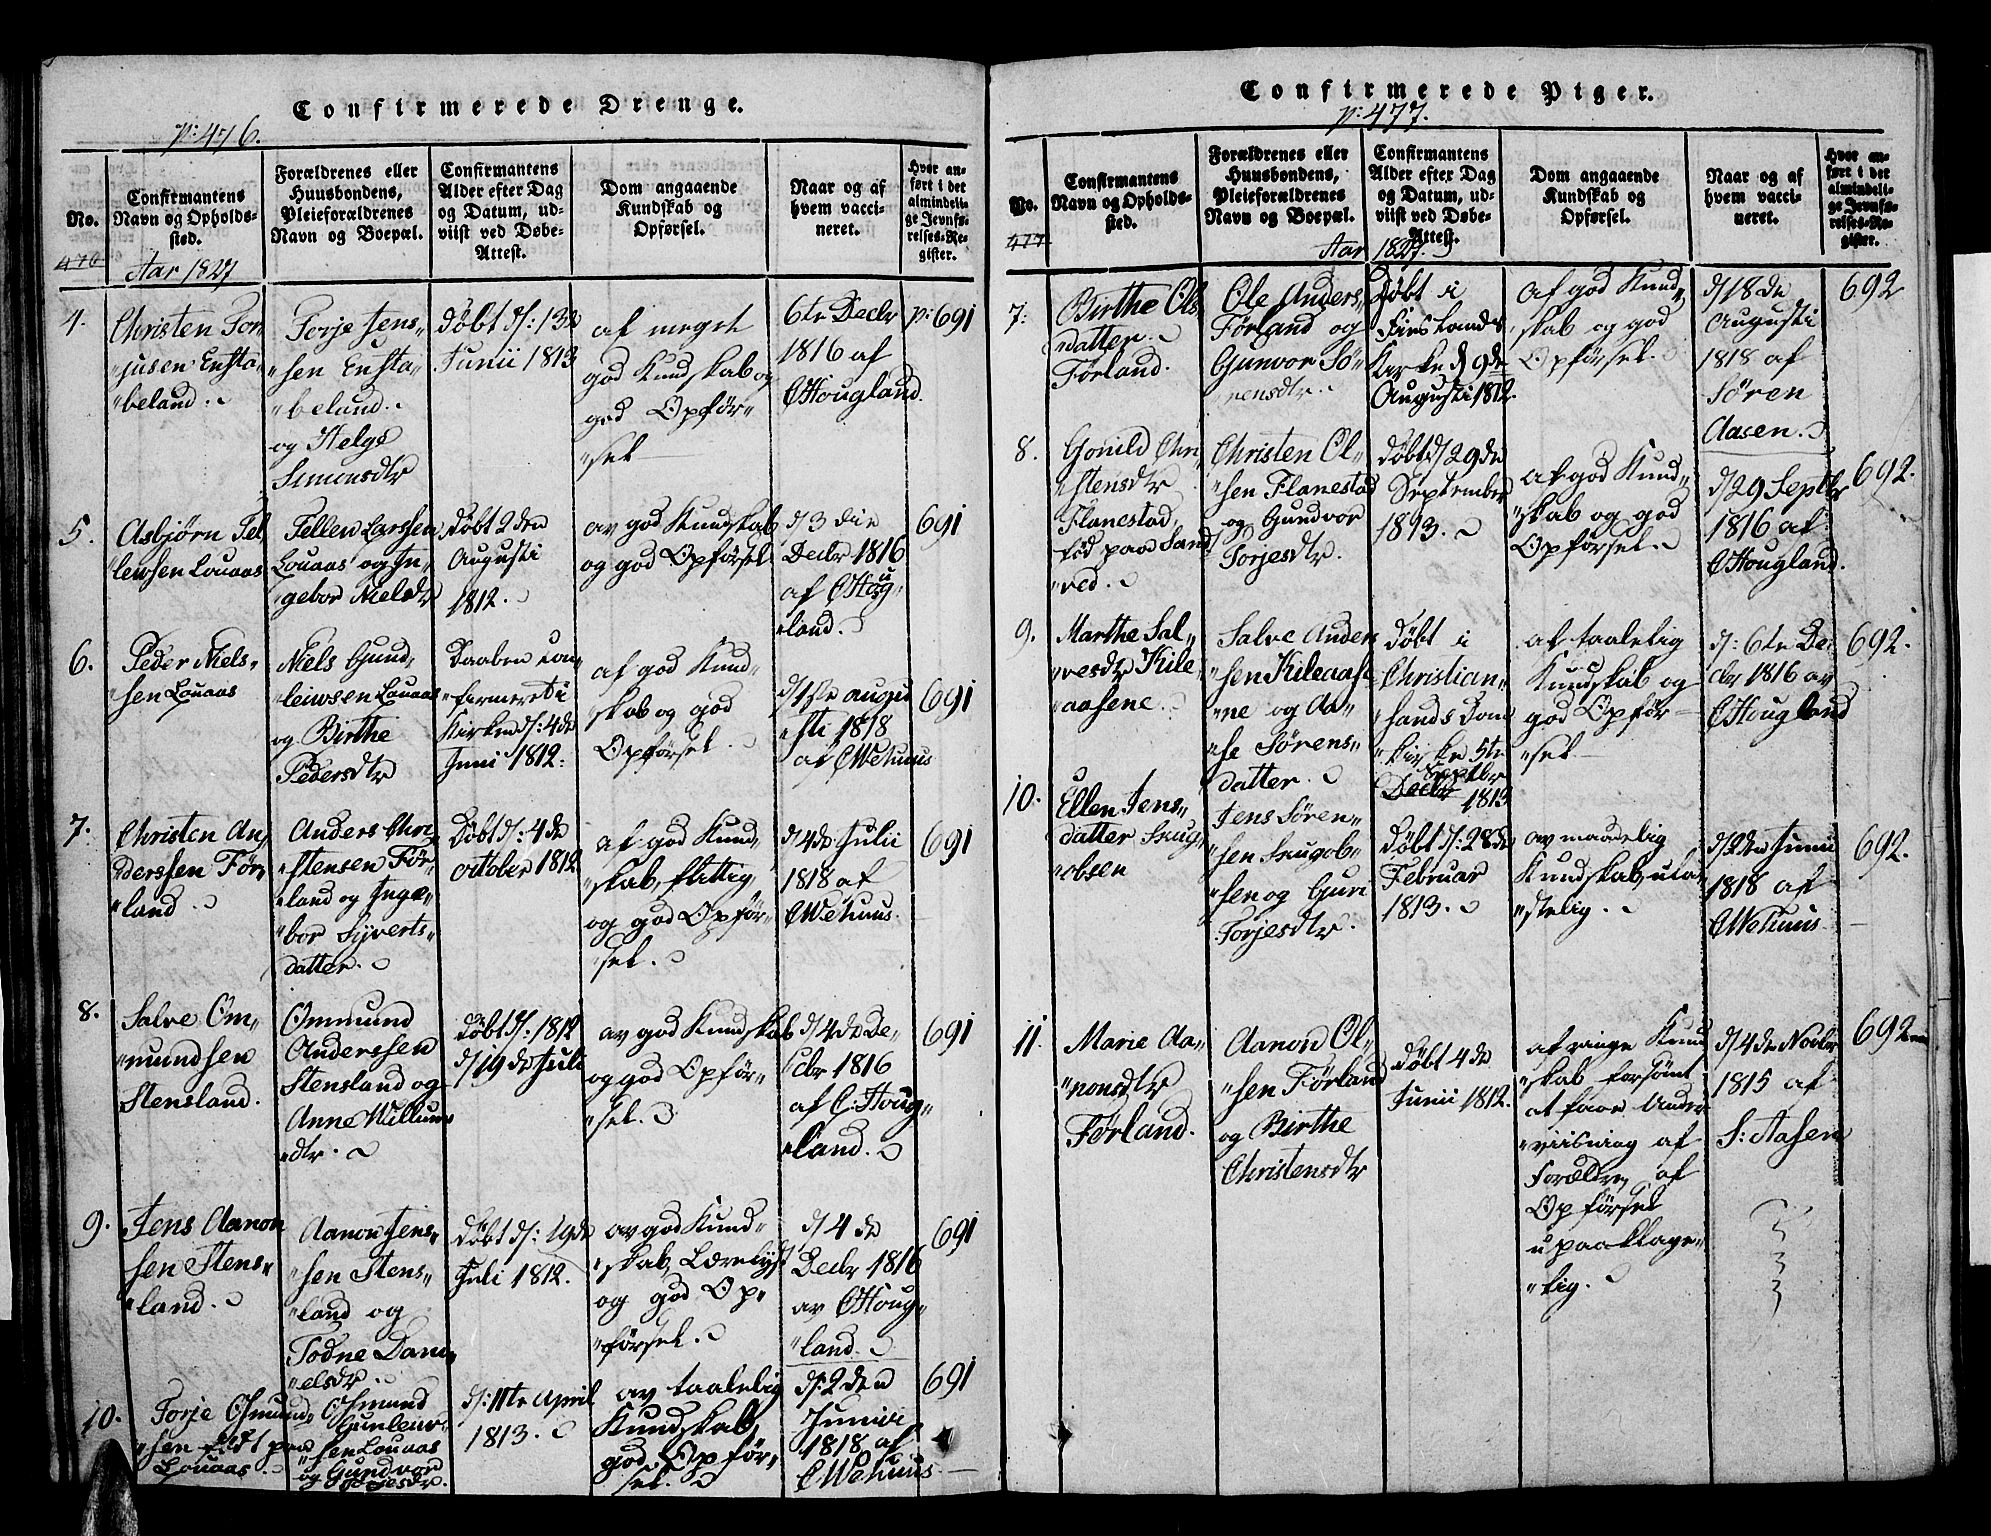 Confirmerede Drenge.
p: 476.
No.
476
Confirmantens
Navn og Opholds-
sted.
Aar 1827
Forældrenes eller
Huusbondens,
Pleieforældrenes
Navn og Boepæl.
Confirmantens
Alder efter Dag
og Datum, ud-
viist ved Døbe-
Attest.
Dom angaaende
Kundskab og
Opførsel.
Naar og af
hvem vacci-
neret.
Hvor an-
ført i det
almindeli-
ge Jevnfø-
relses-Re-
gister.
4.
Christen Tor
"jusen Ensta"
"beland.
Torje Jens"
"sen Ensta"
"beland.
og Helge
Simonsdtr
Døbt d: 13de
Junii 1813
af meget
god Kundskab og
god Opfør"
"sel
6te Decbr
1816 af
C Hougland.
p: 691
5.
Asbjørn Tel
lewsen Louaas
Tellew Larssen
Louaas og In"
"gebor Nielsdtr
Døbt 2den
Augusti
1812.
av god Kundskab
og god Opførsel
d/3die
Decbr 1816
af C Houg"
"land.
691
6.
Peder Niels"
"sen Louaas
Niels Gund"
leiwsen Louaas
og Birthe
Pedersdtr
Daaben Con"
"firmeret i
Kirken d: 4de
Junii 1812.
af god Kund"
"skab og god
Opførsel.
d/1ste augu
"sti 1818
af C Wehuus
691
7.
Christen An
derssen Før"
"land
Anders Chri
"stensen Før"
"land og Inge"
bor Syverts"
datter.
Døbt d: 4de
october 1812
af god Kund"
"skab, flittig,
og god Opfør"
"sel.
d/4de Julii
1818 af
C Wehuus.
691
8.
Salve Om"
"mundsen
Stensland.
Ommund
Anderssen
Stensland og
Anne Willums
"dtr.
Døbt d: 1812
d/19de Juli
av god Kundskab
og god Opfør"
"sel.
d/4de De"
"cbr 1816
af C: Houg"
"land.
691
9.
Jens Aanon
sen Stens"
"land.
Aanon Jens"
"sen Stens"
"land og
Todne Dani"
"elsdtr.
Døbt d: 19de
Juli 1812.
av god Kund"
"skab, Lærelyst
og god Op"
"førsel.
d/4de
Decbr 1816
av C Houg"
"land.
691
10.
Torje Osmund"
"sen født paa
Louaas.
Osmund
Gunleiw"
"sen Louaas
og Gundvor
Torjesdtr.
d: 11te April
1813.
av taalelig
Kundskab,
god Opfør"
sel.
d: 2den
Junii
1818 af
C Wehuus
691
Confirmerede Piger.
p: 477.
No.
477
Confirmantens
Navn og Opholds-
sted.
Forældrenes eller
Huusbondens,
Pleieforældrenes
Navn og Boepæl.
Aar 1827.
Confirmantens
Alder efter Dag
og Datum, ud-
viist ved Døbe-
Attest.
Dom angaaende
Kundskab og
Opførsel.
Naar og af
hvem vacci-
neret.
Hvor an-
ført i det
almindeli-
ge Jevnfø-
relses-Re-
gister.
7.
Birthe Ols
"datter.
Førland.
Ole Anders"
Førland og
Gunvor Sø"
rensdtr.
Døbt i
Kirke d 9de
Augusti 1812.
af god Kund"
"skab og god
Opførsel.
d/18de
Augusti
1818 af
Søren
Aasen.
692
8.
Gonild Chri
"stensdtr
Flanestad
Fød paa Sand
"ved.
Christen Ol"
"sen Flanestad
og Gundvor
Torjesdtr.
Døbt d/29de
September
1813.
af god Kund"
"skab og god
Opførsel.
d/29 Septbr
1816 af
C Hougland.
692.
9.
Marthe Sal"
"vesdtr Kile"
"aasene.
Salve Anders
"sen Kileaase
"ne og Aa"
"se Sørens"
datter.
Døbt i
Christian"
"sands Dom
"kirke 5te
Septbr
Decbr 1813
af taalelig
Kundskab og
god Opfør
"sel
d: 6te De"
cbr 1816 av
C Hougland
692.
10.
Ellen Jens"
datter Snug"
"obsen
Jens Søren"
"sen Snugob"
"sen og Guri
Torjesdtr.
Døbt d: 28de
Februar
1813.
av maadelig
Kundskab, usæ"
"delig.
d/22de Junii
1818 af
C Wehuus
692.
11.
Marie Aa"
"nonsdtr
Førland.
Aanon Ol"
"sen Førland
og Birthe
Christensdtr
Døbt 4de
Junii 1812.
af ringe Kund
"skab forsømt
at faae Under
"viisning af
Forældre, af
Opførsel
upaaklage"
"lig.
d/4de Novbr
1815 af
S: Aasen
692